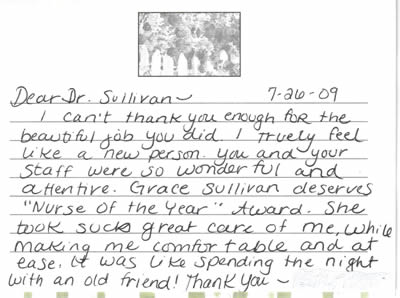 Dear Dr. Sullivan~ 7-26-09
I can't thank you enough for the
beautiful job you did. I truely feel
like a new person. You and your
staff were so wonderful and
attentive. Grace Sullivan deserves
"Nurse of the Year" Award. She
took such great care of me, while
making me comfortable and at
ease. It was like spending the night
with an old friend! Thank you~